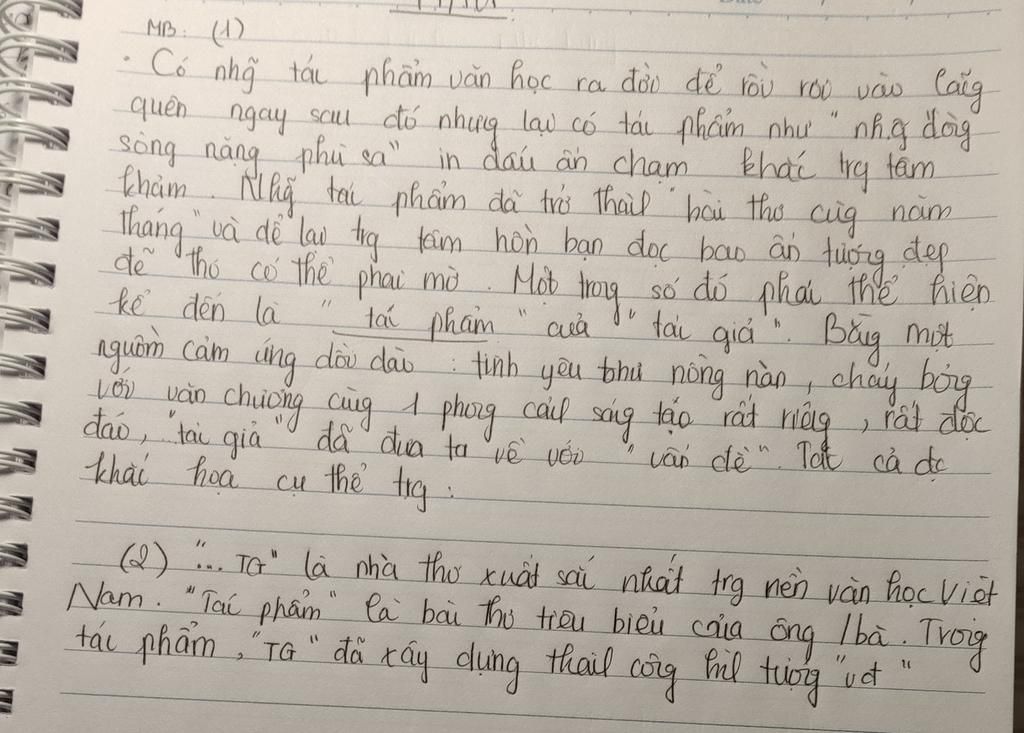 MB: (1)
. Có nhg̃ tác phẩm văn học ra đời để rồi rơi vào lãg
quên ngay sau đó nhưng lại có tác phẩm như "nhg̃ dòg
sông nặng phù sa" in dấu ấn chạm khắc trg tâm
khảm. Nhg̃ tác phẩm đã trở thàh "bài thơ cùg năm
tháng" và để lại trg tâm hồn bạn đọc bao ấn tượng đẹp
đẽ thó có thể phai mờ. Một trong số đó phải thể hiện
kể đến là "tác phẩm" của "tác giả". Bằg một
nguồm cảm ứng dồi dào: tình yêu thu nồng nàn, cháy bỏg
với văn chương cùg 1 phog cách sáng tạo rất riêg, rất độc
đáo, "tác giả" đã đưa ta về với "vấn đề". Tất cả đc
khắc họa cụ thể trg:
(2) "... TG" là nhà thơ xuất sắc nhất trg nền văn học Việt
Nam. "Tác phẩm" là bài thơ tiêu biểu của ông/bà. Trog
tác phẩm, "TG" đã xây dựng thàh côg hìh tượg "vđ"